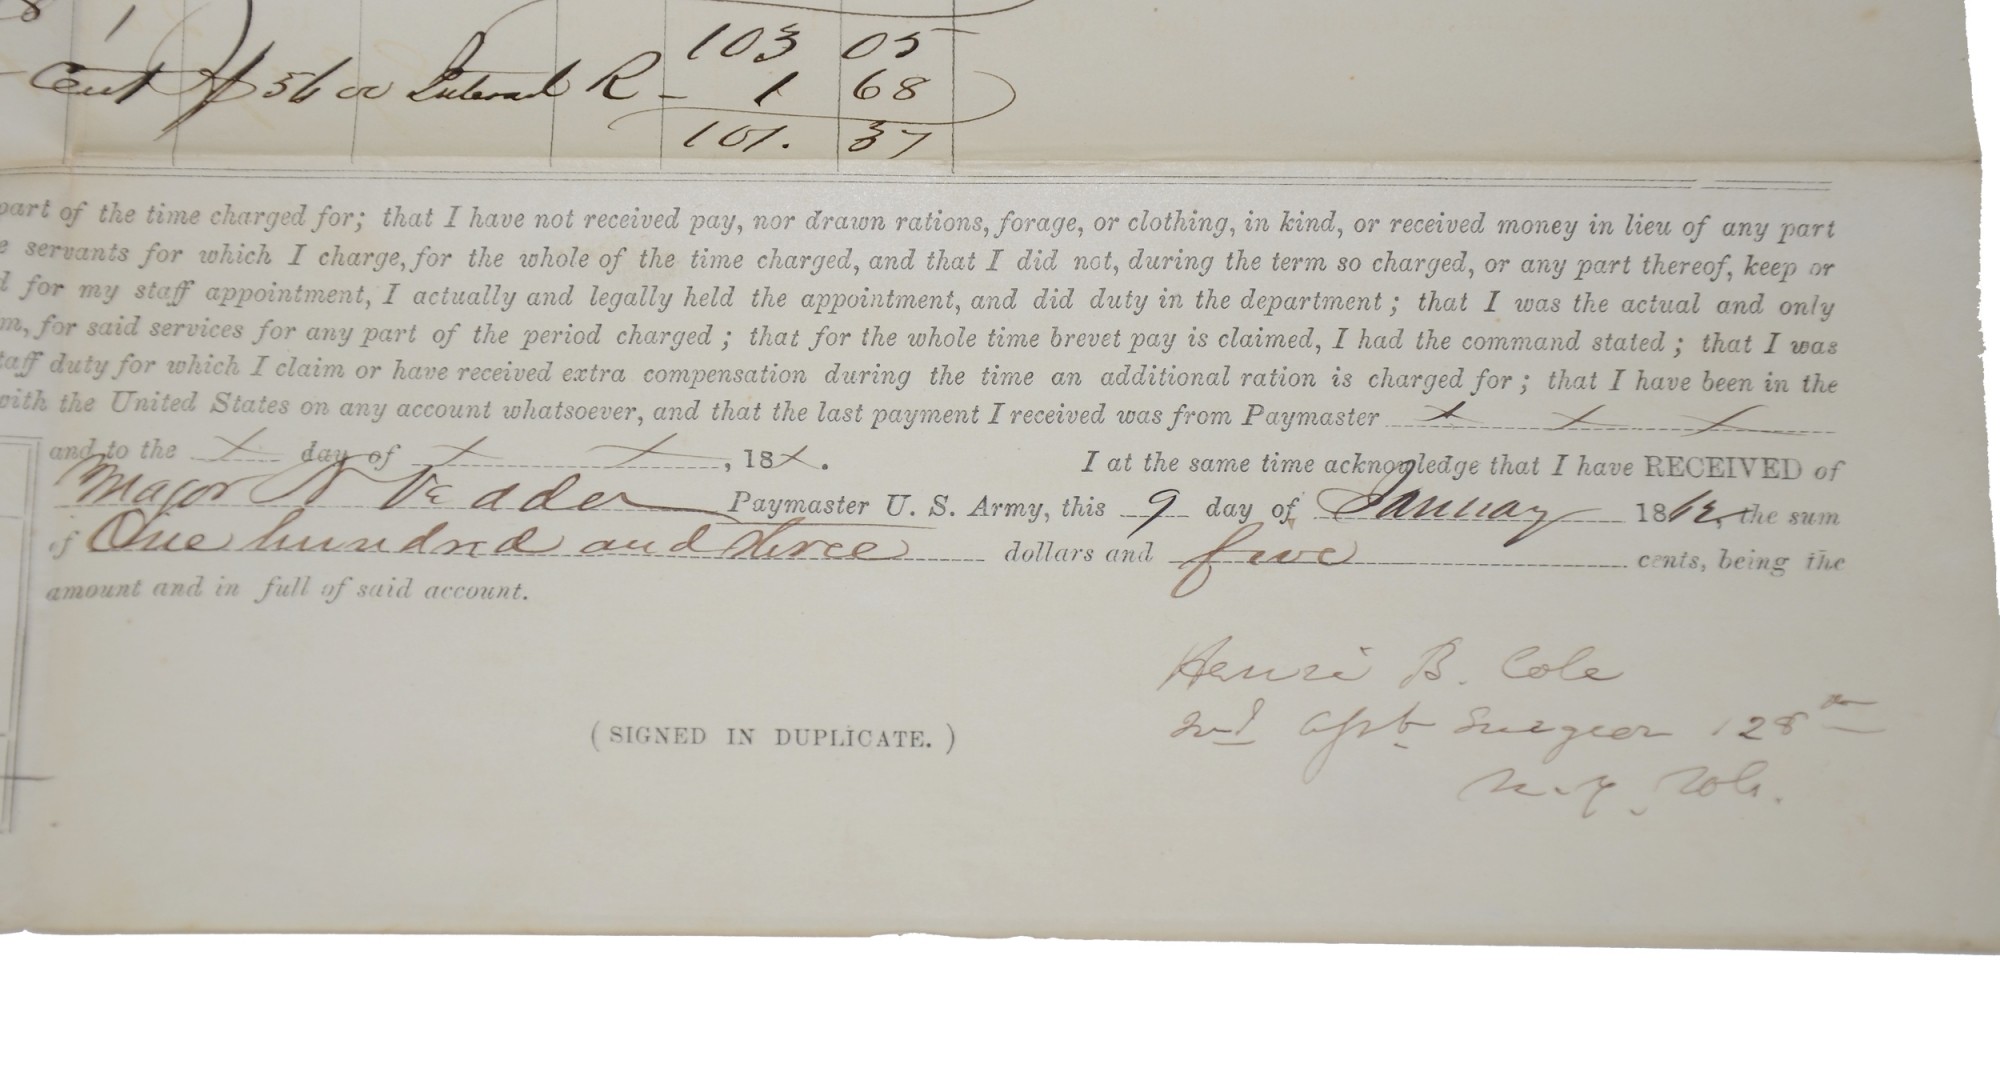 8 1
103 05
Cent 56 00 Internal R - 1 68
101. 37
part of the time charged for; that I have not received pay, nor drawn rations, forage, or clothing, in kind, or received money in lieu of any part
servants for which I charge, for the whole of the time charged, and that I did not, during the term so charged, or any part thereof, keep or
for my staff appointment, I actually and legally held the appointment, and did duty in the department; that I was the actual and only
for said services for any part of the period charged; that for the whole time brevet pay is claimed, I had the command stated; that I was
staff duty for which I claim or have received extra compensation during the time an additional ration is charged for; that I have been in the
with the United States on any account whatsoever, and that the last payment I received was from Paymaster x x x
and to the x day of x x, 18x. I at the same time acknowledge that I have RECEIVED of
Major N Vedder Paymaster U. S. Army, this 9 day of January 186, the sum
of One hundred and three dollars and five cents, being the
amount and in full of said account.
Henri B. Cole
2nd Asst Surgeon 128th
N.Y. Vols.
(SIGNED IN DUPLICATE.)